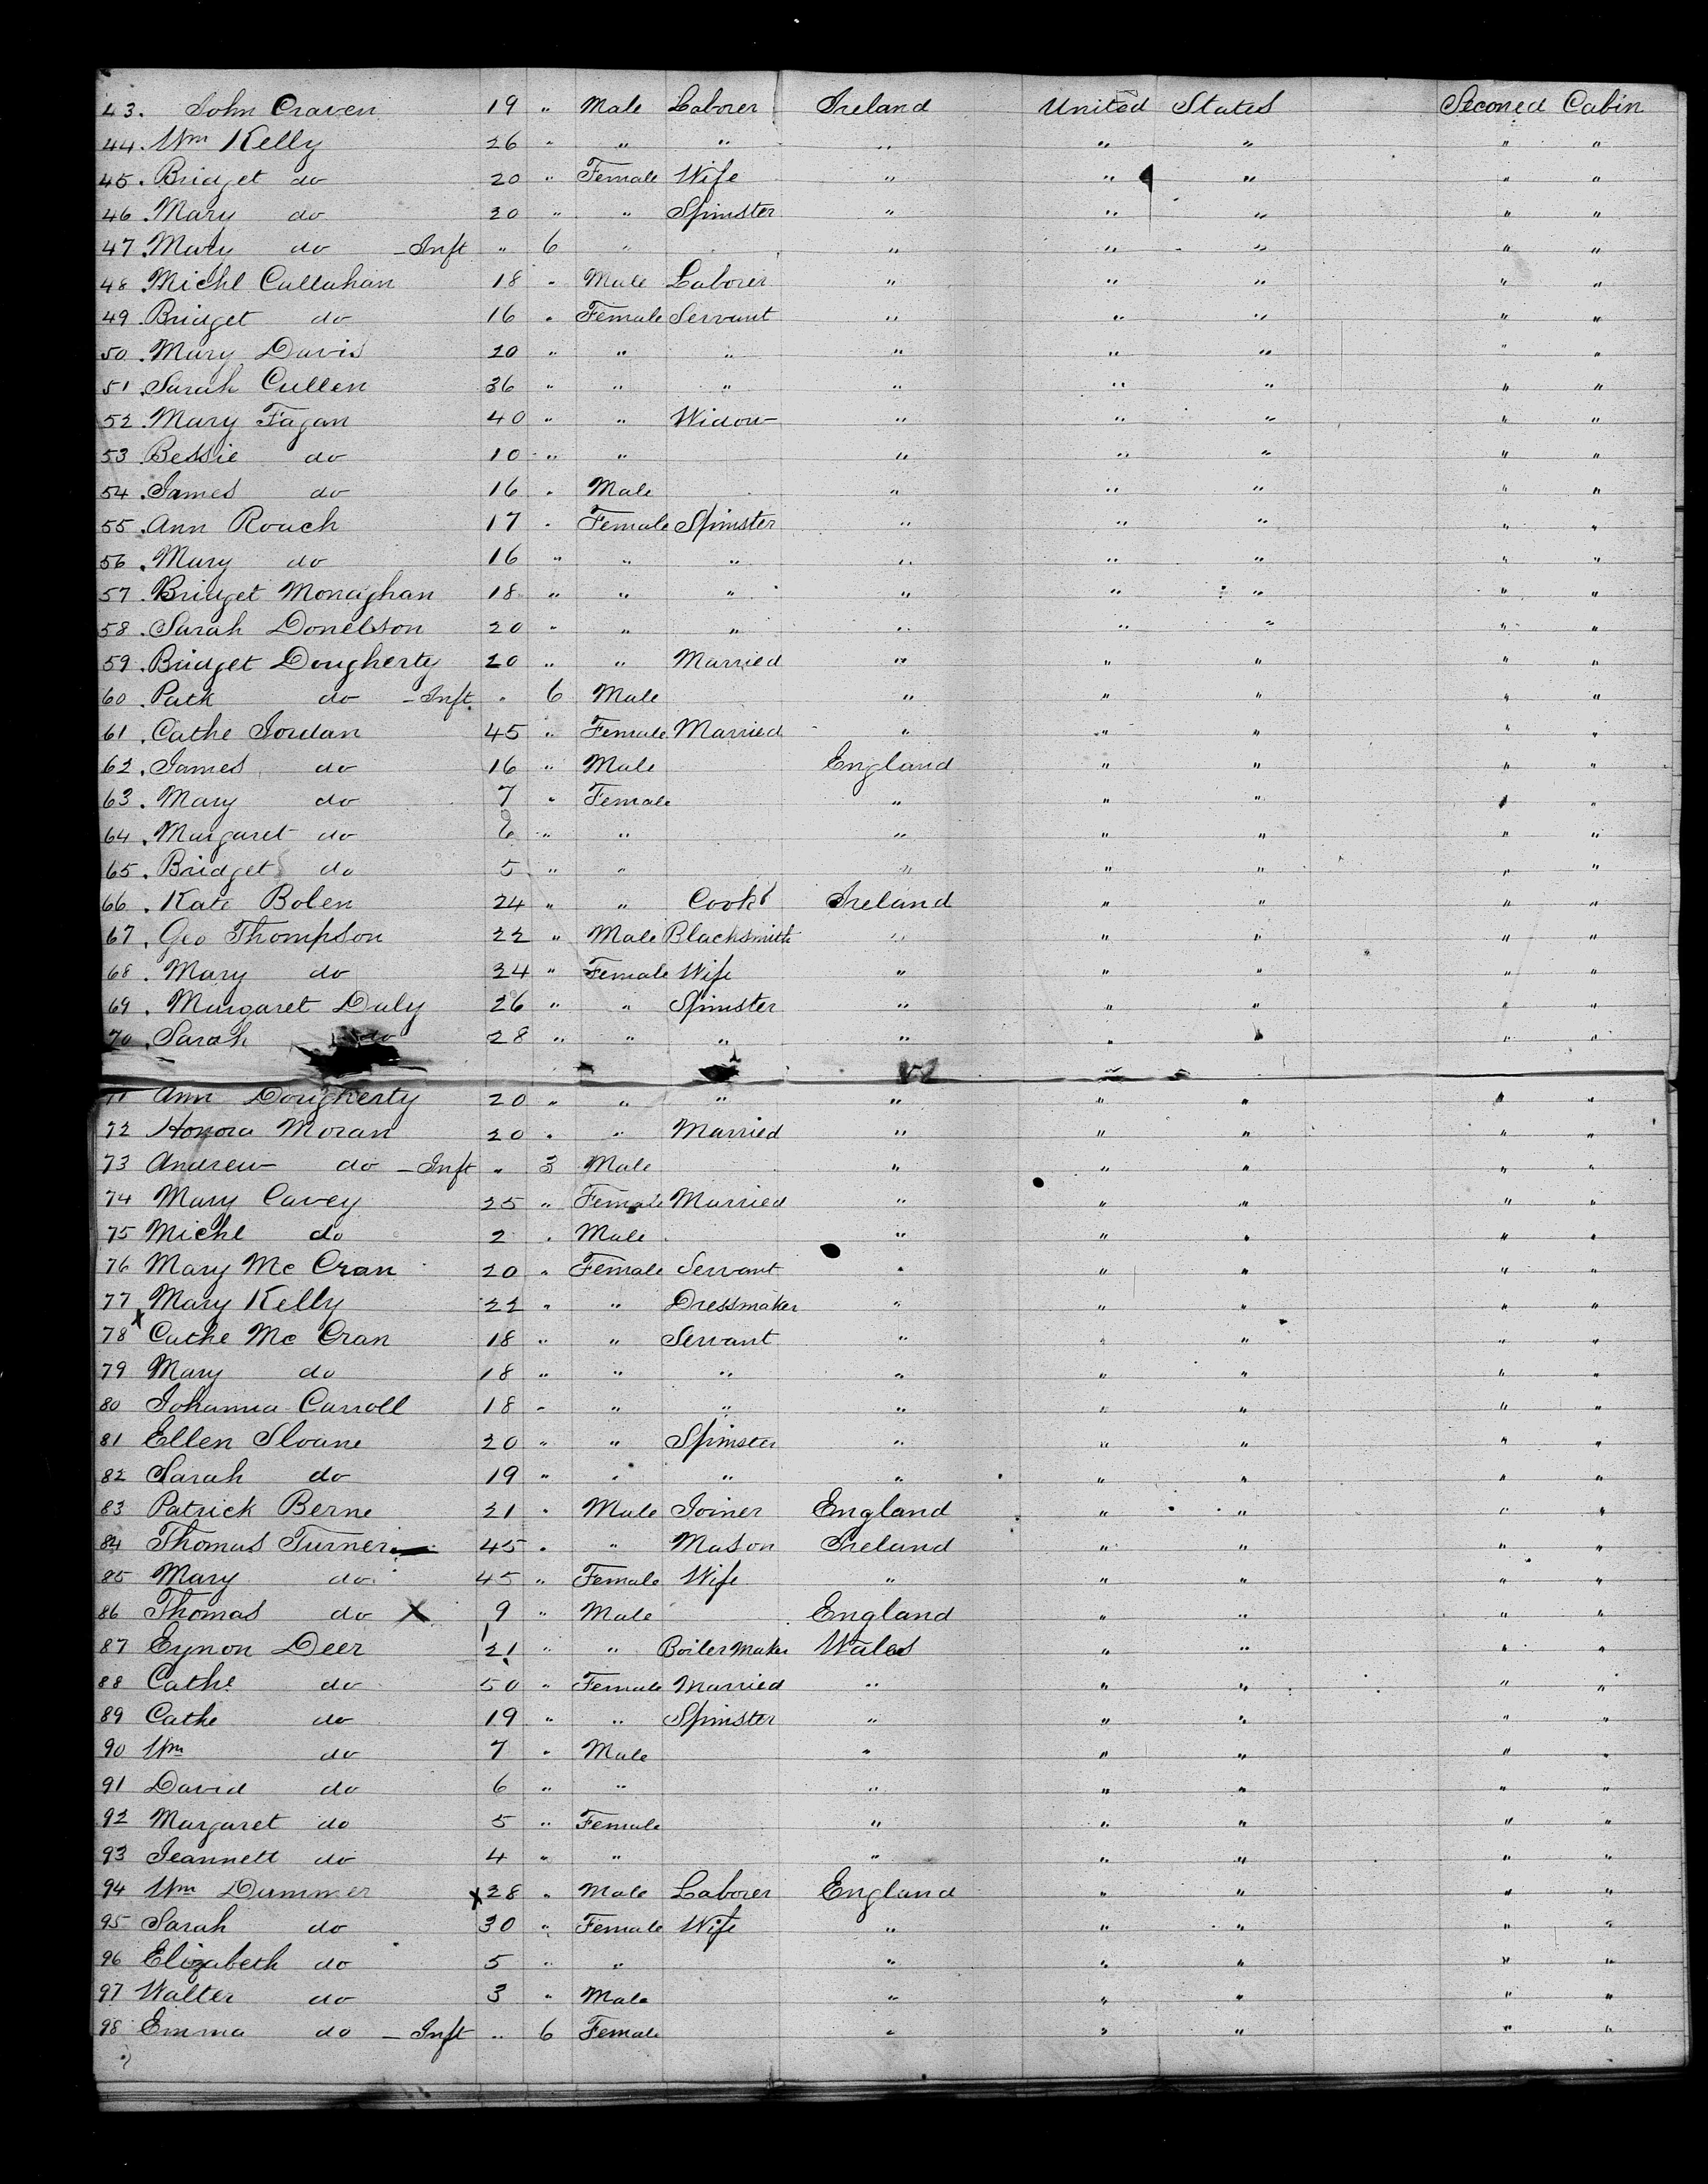 43. John Craven 19 " Male Laborer Ireland United States Seconed Cabin
44. Wm Kelly 26 " " " " " " " "
45. Bridget do 20 " Female Wife " " " " "
46. Mary do 20 " " Spinster " " " " "
47. Mary do - Inft " 6 " " " " " "
48. Michl Callahan 18 " Male Laborer " " " " "
49. Bridget do 16 " Female Servant " " " " "
50. Mary Davis 20 " " " " " " " "
51. Sarah Cullen 36 " " " " " " " "
52. Mary Fagan 40 " " Widow " " " " "
53. Bessie do 10 " " " " " " "
54. James do 16 " Male " " " " "
55. Ann Rouch 17 " Female Spinster " " " " "
56. Mary do 16 " " " " " " " "
57. Bridget Monaghan 18 " " " " " " " "
58. Sarah Donelson 20 " " " " " " " "
59. Bridget Dougherty 20 " " Married " " " " "
60. Patk do - Inft. " 6 Male " " " " "
61. Cathe Jordan 45 " Female Married " " " " "
62. James do 16 " Male England " " " "
63. Mary do 7 " Female " " " " "
64. Margaret do 6 " " " " " " "
65. Bridget do 5 " " " " " " "
66. Kate Bolen 24 " " Cook Ireland " " " "
67. Geo Thompson 22 " Male Blacksmith " " " " "
68. Mary do 24 " Female Wife " " " " "
69. Margaret Daly 26 " " Spinster " " " " "
70. Sarah do 28 " " " " " " " "
71 Ann Dougherty 20 " " " " " " " "
72 Honora Moran 20 " " Married " " " " "
73 Andrew do - Inft " 3 Male " " " " "
74 Mary Cavey 25 " Female Married " " " " "
75 Michl do 2 " Male " " " " "
76 Mary Mc Cran 20 " Female Servant " " " " "
77 Mary Kelly 22 " " Dressmaker " " " " "
78 x Cathe Mc Cran 18 " " Servant " " " " "
79 Mary do 18 " " " " " " " "
80 Johanna Carroll 18 " " " " " " " "
81 Ellen Sloane 20 " " Spinster " " " " "
82 Sarah do 19 " " " " " " " "
83 Patrick Berne 21 " Male Joiner England " " " "
84 Thomas Turner 45 " " Mason Ireland " " " "
85 Mary do 45 " Female Wife " " " " "
86 Thomas do X 9 " Male England " " " "
87 Eynon Deer 21 " " Boiler Maker Wales " " " "
88 Cathe do 50 " Female Married " " " " "
89 Cathe do 19 " " Spinster " " " " "
90 Wm do 7 " Male " " " " "
91 David do 6 " " " " " " "
92 Margaret do 5 " Female " " " " "
93 Jeannett do 4 " " " " " " "
94 Wm Dummer x 28 " Male Laborer England " " " "
95 Sarah do 30 " Female Wife " " " " "
96 Elizabeth do 5 " " " " " " "
97 Walter do 3 " Male " " " " "
98 Emma do - Inft " 6 Female " " " " "